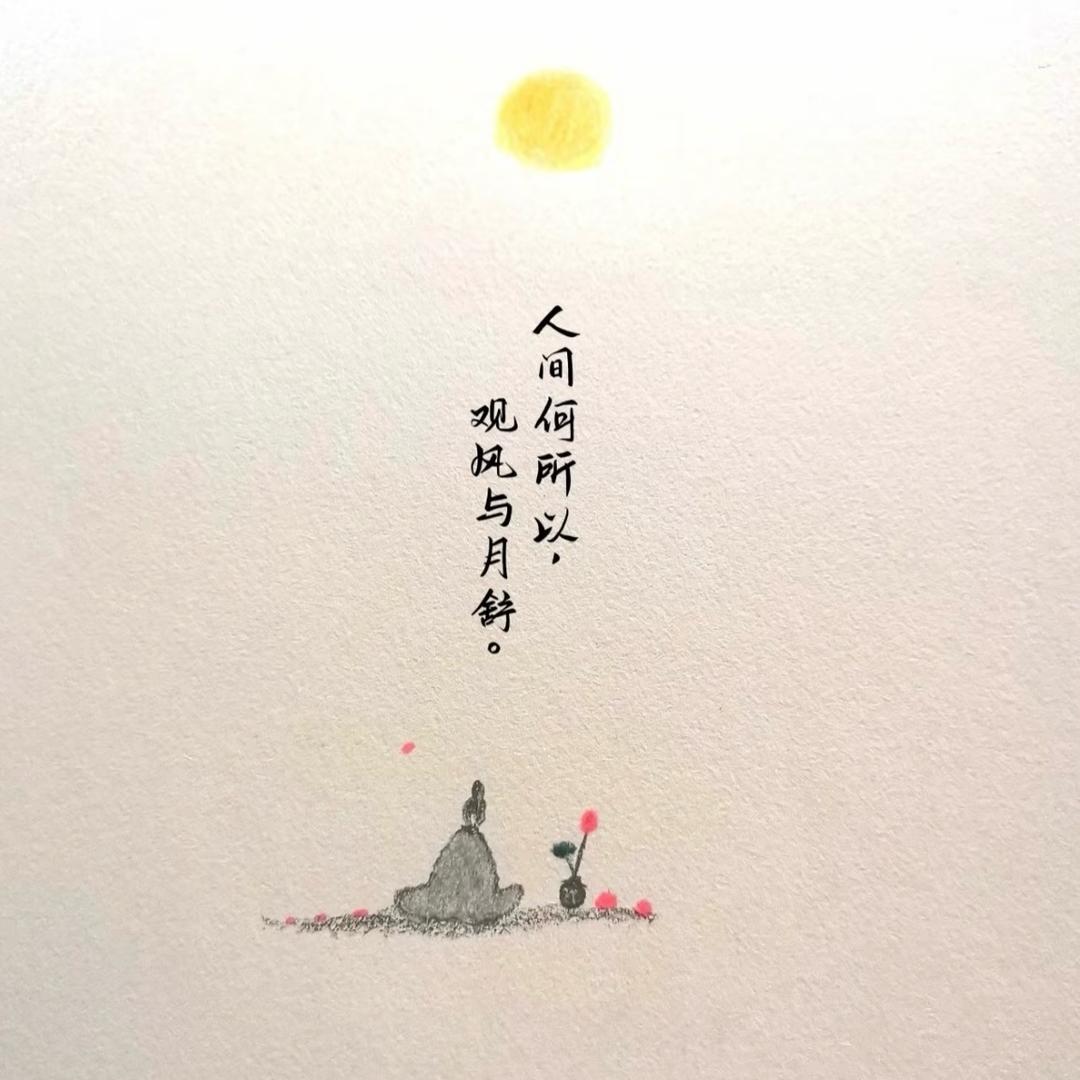 人间何所以，
观风与月舒。